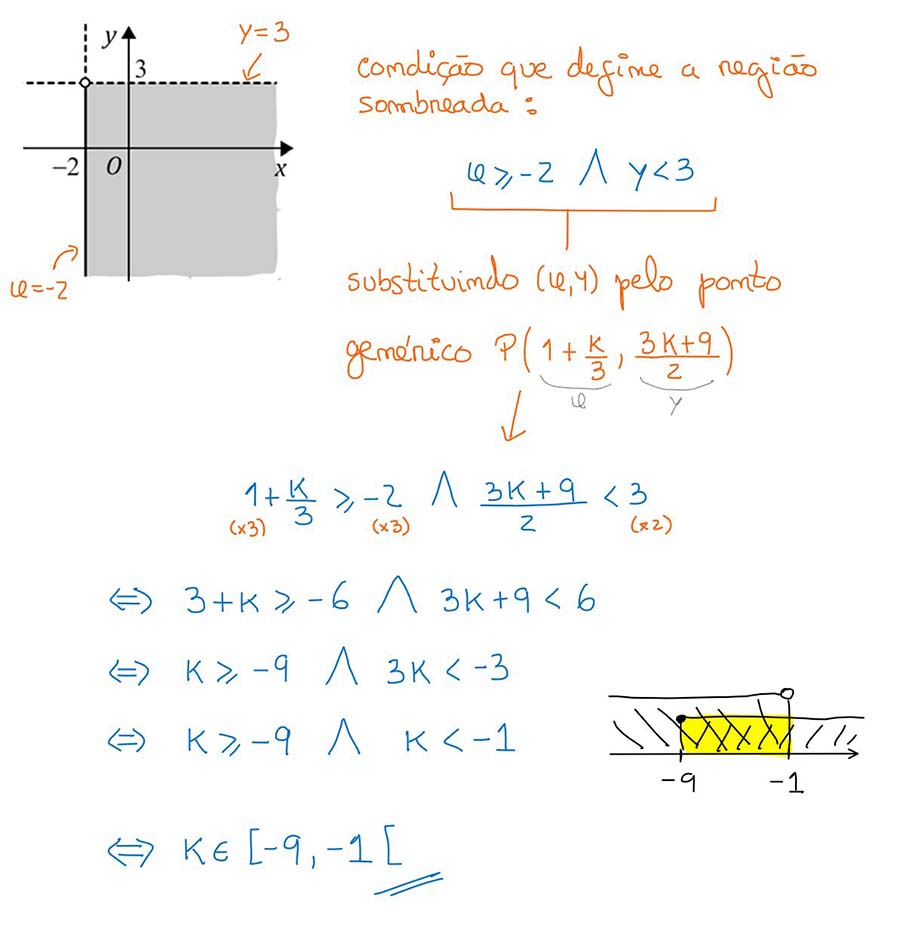 y
y=3
3
-2
O
x
x=-2
condição que define a região
sombreada:
x⩾-2 ∧ y<3
substituindo (x,y) pelo ponto
genérico P(1+K/3, 3K+9/2)
x
y
1+K/3 ⩾ -2 ∧ 3K+9/2 < 3
(x3) (x3) (x2)
⇔ 3+K ⩾ -6 ∧ 3K+9 < 6
⇔ K ⩾ -9 ∧ 3K < -3
⇔ K ⩾ -9 ∧ K < -1
-9
-1
⇔ K ∈ [-9, -1[